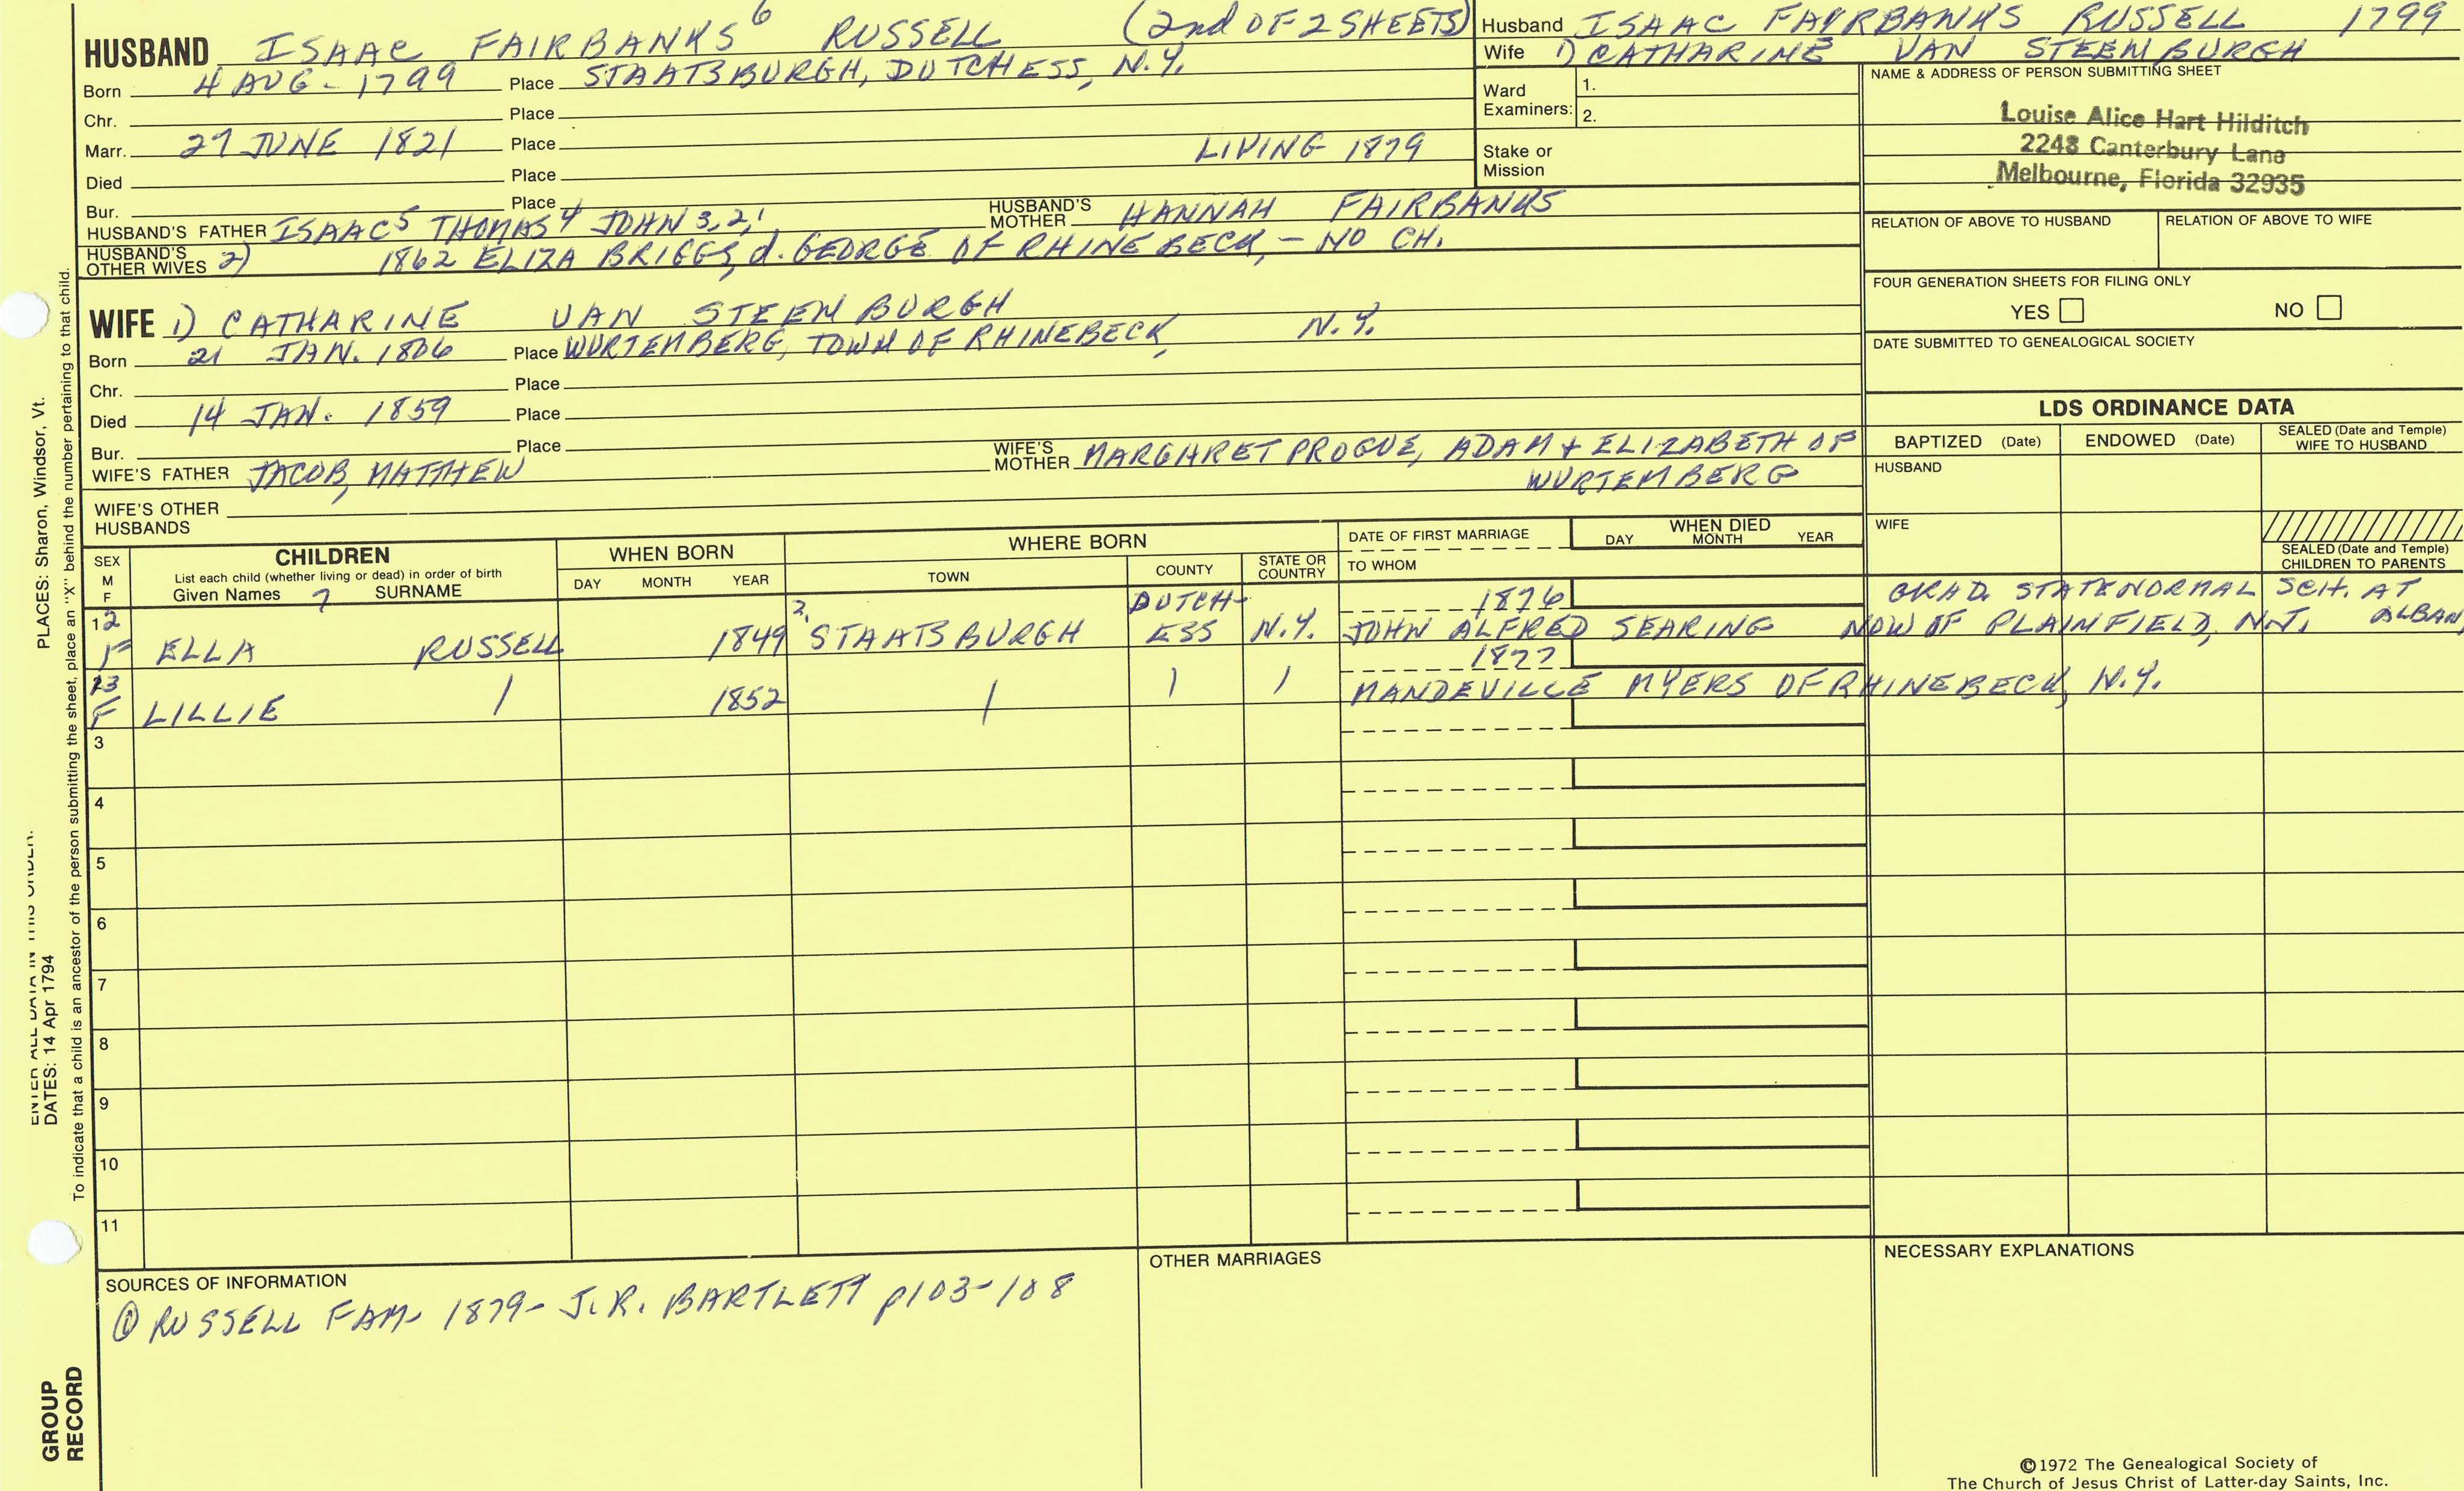 HUSBAND ISAAC FAIRBANKS 6 RUSSELL (2nd OF 2 SHEETS)
Born 4 AUG - 1799 Place STAATSBURGH, DUTCHESS, N.Y.
Chr. Place
Marr. 27 JUNE 1821 Place
Died Place LIVING 1879
Bur. Place
HUSBAND'S FATHER ISAAC 5 THOMAS 4 JOHN 3,2,1 HUSBAND'S MOTHER HANNAH FAIRBANKS
HUSBAND'S OTHER WIVES 2) 1862 ELIZA BRIGGS, d. GEORGE OF RHINEBECK, - NO CH.
WIFE 1) CATHARINE VAN STEENBURGH
Born 21 JAN. 1806 Place WURTEMBERG, TOWN OF RHINEBECK, N.Y.
Chr. Place
Died 14 JAN. 1859 Place
Bur. Place
WIFE'S FATHER JACOB, MATTHEW WIFE'S MOTHER MARGHRET PROGUE, ADAM + ELIZABETH OF
WURTEMBERG
WIFE'S OTHER HUSBANDS
Husband ISAAC FAIRBANKS RUSSELL 1799
Wife 1) CATHARINE VAN STEENBURGH
Ward Examiners: 1.
2.
Stake or Mission
NAME & ADDRESS OF PERSON SUBMITTING SHEET
Louise Alice Hart Hilditch
2248 Canterbury Lane
Melbourne, Florida 32935
RELATION OF ABOVE TO HUSBAND RELATION OF ABOVE TO WIFE
FOUR GENERATION SHEETS FOR FILING ONLY
YES NO
DATE SUBMITTED TO GENEALOGICAL SOCIETY
LDS ORDINANCE DATA
BAPTIZED (Date) ENDOWED (Date) SEALED (Date and Temple) WIFE TO HUSBAND
HUSBAND
WIFE
SEALED (Date and Temple) CHILDREN TO PARENTS
SEX M F
CHILDREN
List each child (whether living or dead) in order of birth
Given Names 7 SURNAME
WHEN BORN
DAY MONTH YEAR
WHERE BORN
TOWN COUNTY STATE OR COUNTRY
DATE OF FIRST MARRIAGE
TO WHOM
WHEN DIED
DAY MONTH YEAR
12 DUTCH- 1876 GRAD. STATE NORMAL SCH. AT ALBAN
F ELLA RUSSELL 1849 STAATSBURGH ESS N.Y. JOHN ALFRED SEARING NOW OF PLAINFIELD, N.J.
13 1877
F LILLIE 1852 MANDEVILLE MYERS OF RHINEBECK, N.Y.
3
4
5
6
7
8
9
10
11
SOURCES OF INFORMATION
① RUSSELL FAM- 1879- J.R. BARTLETT p103-108
OTHER MARRIAGES
NECESSARY EXPLANATIONS
©1972 The Genealogical Society of
The Church of Jesus Christ of Latter-day Saints, Inc.
DATES: 14 Apr 1794
PLACES: Sharon, Windsor, Vt.
To indicate that a child is an ancestor of the person submitting the sheet, place an "X" behind the number pertaining to that child.
GROUP
RECORD